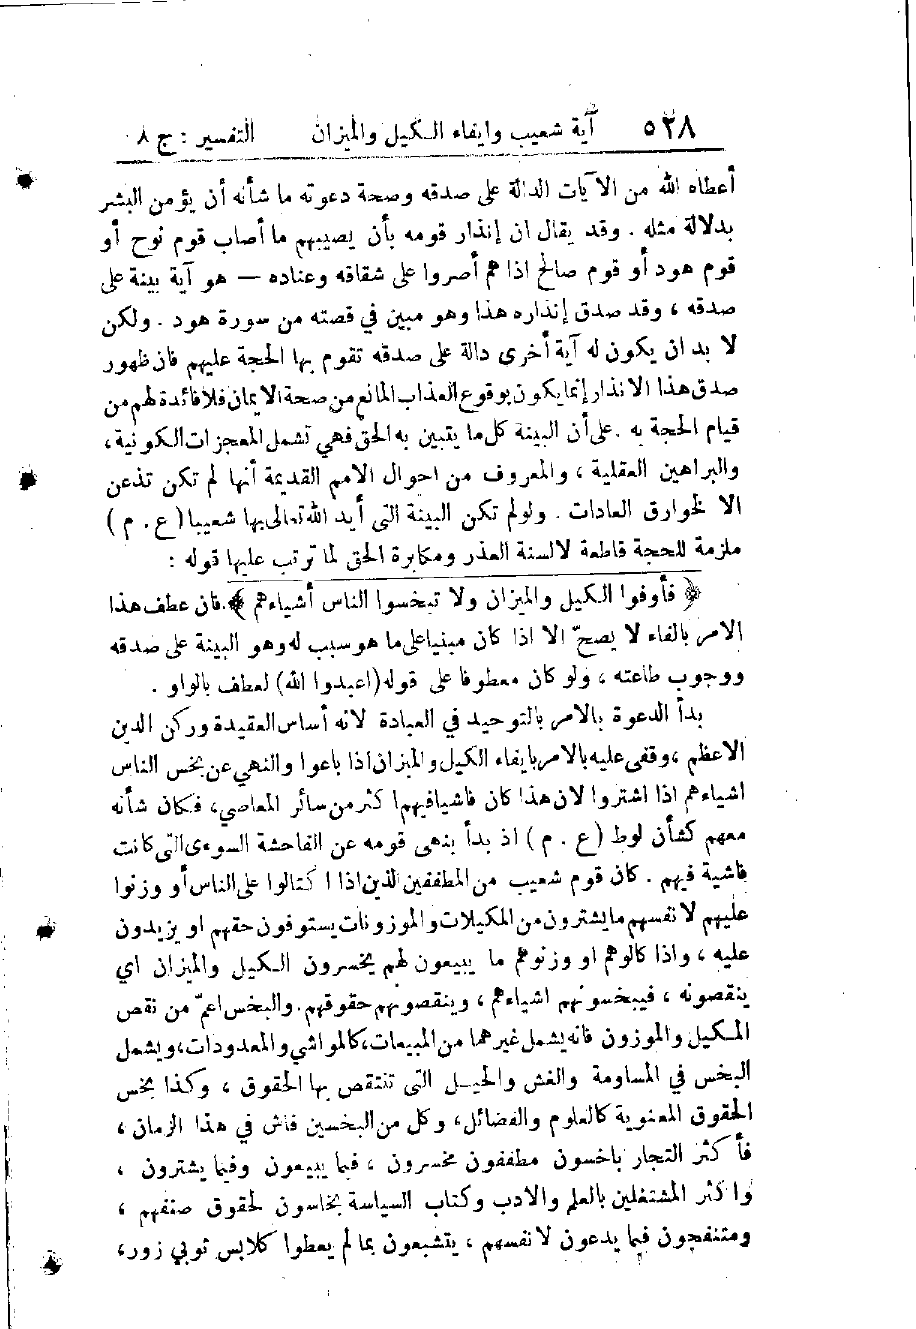 ٥٢٨ آية شعيب وايفاء الكيل والميزان التفسير : ج ٨
أعطاه الله من الآيات الدالة على صدقه وصحة دعوته ما شأنه أن يؤمن البشر
بدلالة مثله . وقد يقال ان إنذار قومه بأن يصيبهم ما أصاب قوم نوح أو
قوم هود أو قوم صالح اذا هم أصروا على شقاقه وعناده — هو آية بينة على
صدقه ، وقد صدق إنذاره هذا وهو مبين في قصته من سورة هود . ولكن
لا بد ان يكون له آية أخرى دالة على صدقه تقوم بها الحجة عليهم فان ظهور
صدق هذا الانذار إنما يكون بوقوع العذاب المانع من صحة الايمان فلا فائدة لهم من
قيام الحجة به . على أن البينة كل ما يتبين به الحق فهي تشمل المعجزات الكونية ،
والبراهين العقلية ، والمعروف من احوال الامم القديمة أنها لم تكن تذعن
الا لخوارق العادات . ولو لم تكن البينة التي أيد الله تعالى بها شعيبا ( ع . م )
ملزمة للحجة قاطعة لالسنة العذر ومكابرة الحق لما ترتب عليها قوله :
﴿ فأوفوا الكيل والميزان ولا تبخسوا الناس أشياءهم ﴾ . فان عطف هذا
الامر بالفاء لا يصحّ الا اذا كان مبنيا على ما هو سبب له وهو البينة على صدقه
ووجوب طاعته ، ولو كان معطوفا على قوله ( اعبدوا الله ) لعطف بالواو .
بدأ الدعوة بالامر بالتوحيد في العبادة لانه أساس العقيدة وركن الدين
الاعظم ، وقفى عليه بالامر بايفاء الكيل والميزان اذا باعوا والنهي عن بخس الناس
اشياءهم اذا اشتروا لان هذا كان فاشيا فيهم اكثر من سائر المعاصي ، فكان شأنه
معهم كشأن لوط ( ع . م ) اذ بدأ بنهى قومه عن الفاحشة السوءى التي كانت
فاشية فيهم . كان قوم شعيب من المطففين الذين اذا اكتالوا على الناس أو وزنوا
عليهم لانفسهم ما يشترون من المكيلات والموزونات يستوفون حقهم او يزيدون
عليه ، واذا كالوهم او وزنوهم ما يبيعون لهم يخسرون الكيل والميزان اي
ينقصونه ، فيبخسونهم اشياءهم ، وينقصونهم حقوقهم . والبخس اعمّ من نقص
المكيل والموزون فانه يشمل غيرهما من المبيعات ، كالمواشي والمعدودات ، ويشمل
البخس في المساومة والغش والحيل التي تنتقص بها الحقوق ، وكذا بخس
الحقوق المعنوية كالعلوم والفضائل ، وكل من البخسين فاش في هذا الزمان ،
فأكثر التجار باخسون مطففون مخسرون ، فيما يبيعون وفيما يشترون ،
واكثر المشتغلين بالعلم والادب وكتاب السياسة بخاسون لحقوق صنفهم ،
ومتنفجون فيما يدعون لانفسهم ، يتشبعون بما لم يعطوا كلابس ثوبي زور ،